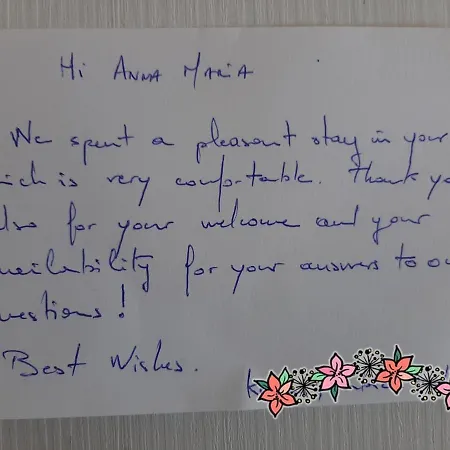 Hi ANNA MARIA
We spent a pleasant stay in your
hich is very comfortable. Thank yo
lso for your welcome and your
vailability for your answers to ou
uestions!
Best Wishes.